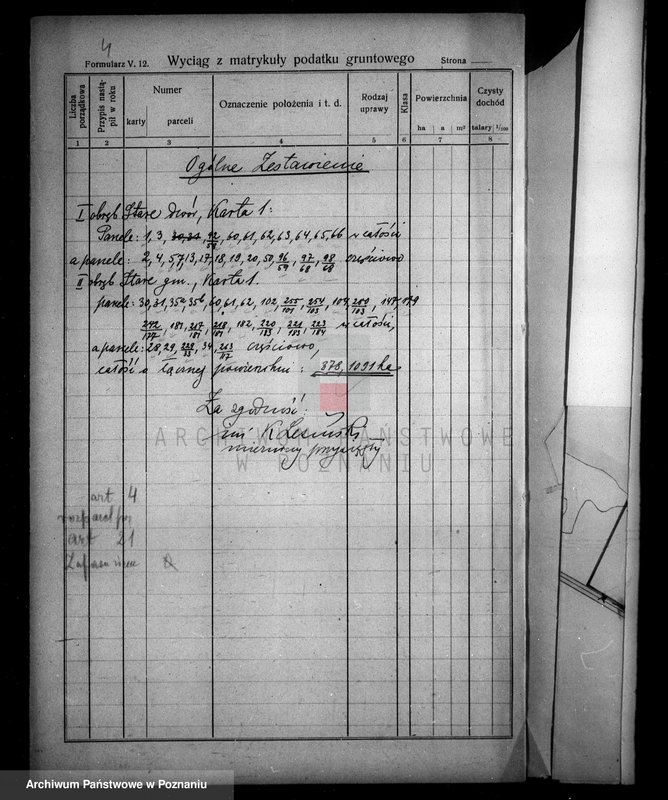 4
Formularz V. 12. Wyciąg z matrykuły podatku gruntowego Strona
Liczba porządkowa
Przypis nastąpił w roku
Numer
karty parceli
Oznaczenie położenia i t. d.
Rodzaj uprawy
Klasa
Powierzchnia
ha a m²
Czysty dochód
talary 1/100
1 2 3 4 5 6 7 8
Ogólne Zestawienie
I obręb Stare dwór, Karta 1:
Parcele: 1, 3, 30, 31, 92/59, 60, 61, 62, 63, 64, 65, 66 w całości
a parcele: 2, 4, 5, 7, 13, 17, 18, 19, 20, 50, 96/59, 97/68, 98/68 częściowo
II obręb Stare gm., Karta 1.
parcele: 30, 31, 35a, 35b, 60, 61, 62, 102, 255/101, 254/103, 104, 280/103, 147, 179
242/177, 181, 217/181, 218/181, 182, 220/183, 221/183, 223/184 w całości,
a parcele: 28, 29, 228/33, 34, 263/97 częściowo,
całość o łącznej powierzchni: 878,1091 ha
Za zgodność:
inż K Lesiński
mierniczy przysięgły
ARCHIWUM PAŃSTWOWE
W POZNANIU
art 4
art 21
Archiwum Państwowe w Poznaniu